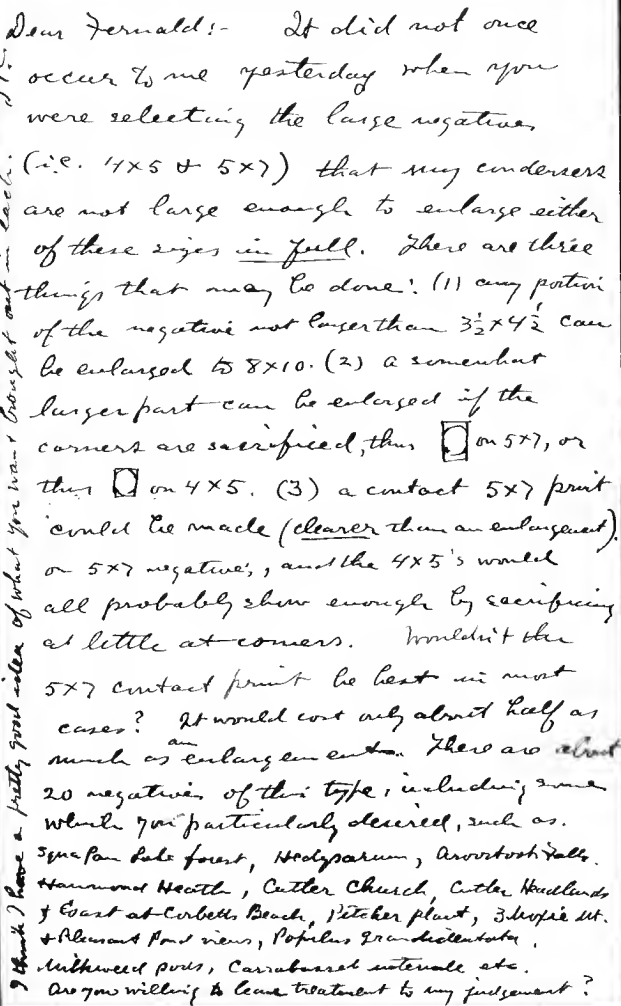 Dear Fernald:- It did not once
occur to me yesterday when you
were selecting the large negatives
(i.e. 4x5 & 5x7) that my condensers
are not large enough to enlarge either
of these sizes in full. There are three
things that may be done: (1) any portion
of the negative not larger than 3½x4½ can
be enlarged to 8x10. (2) a somewhat
larger part can be enlarged if the
corners are sacrificed, thus on 5x7, or
thus on 4x5. (3) a contact 5x7 print
could be made (clearer than an enlargement).
on 5x7 negatives, and the 4x5's would
all probably show enough by sacrificing
at little at corners. Wouldn't the
5x7 contact print be best in most
cases? It would cost only about half as
much as an enlargement. There are about
20 negatives of this type, including some
which you particularly desired, such as.
Squa Pan Lake forest, Hedysarum, Aroostook Falls.
Hammond Heath, Cutler Church, Cutler Headlands
& Coast at Corbetts Beach, Pitcher plant, 3 Moxie Mt.
& Pleasant Pond views, Populus grandidentata,
Milkweed pods, Carrabasset intervale etc.
Are you willing to leave treatment to my judgement?
I think I have a pretty good idea of what you want brought out in each.